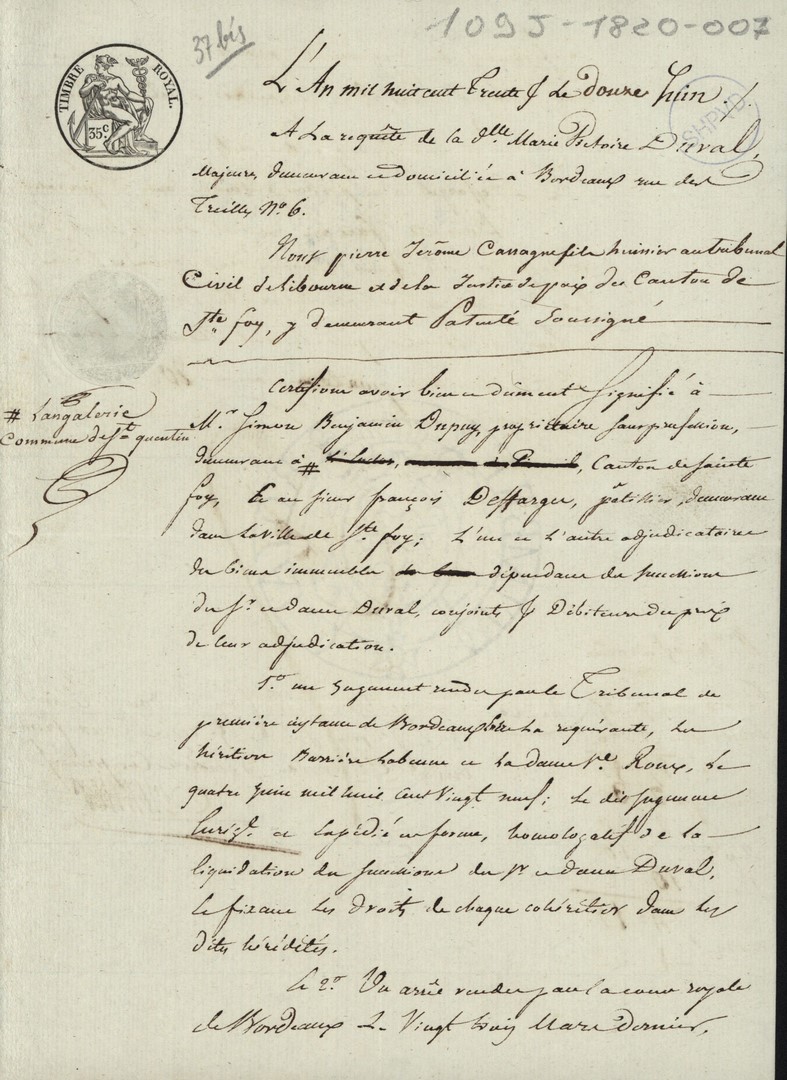 37 bis
109J-1820-007
TIMBRE ROYAL.
35c
SHPVD
L'An mil huit cent Trente & Le douze Juin ./.
A La requête de la dlle Marie Victoire Duval,
Majeure, demeurant et domiciliée à Bordeaux rue des
Treilles No. 6.
Nous pierre Jérôme Cassagne fils huissier au tribunal
Civil de Libourne et de la Justice de paix du Canton de
Ste foy, y demeurant Patenté Soussigné
Certifions avoir bien et dûment Signifié à
# Langalerie
Commune de St quentin
Mr. Simon Benjamin Dupuy, propriétaire sans profession,
demeurant à # Canton de Sainte
foy, Et au sieur françois Deffarges, pâtissier, demeurant
dans La Ville de Ste foy; L'un et L'autre adjudicataire
des biens immeubles dépendant des successions
des Sr. et dame Duval, conjoints & Débiteurs du prix
de leur adjudication.
1o. un Jugement rendu par le Tribunal de
première instance de Bordeaux entre La requérante, Les
héritiers Barrière Labenne et La dame Ve. Roux, Le
quatre Juin mil huit Cent Vingt neuf; Le dit Jugement
Enrigé. et Expédié en forme, homologatif de la
liquidation des successions des Sr et dame Duval,
Et fixant Les droits de chaque cohéritier dans Les
dites hérédités.
Et 2o. Un arrêt rendu par La cour royale
de Bordeaux Le Vingt trois Mars dernier,